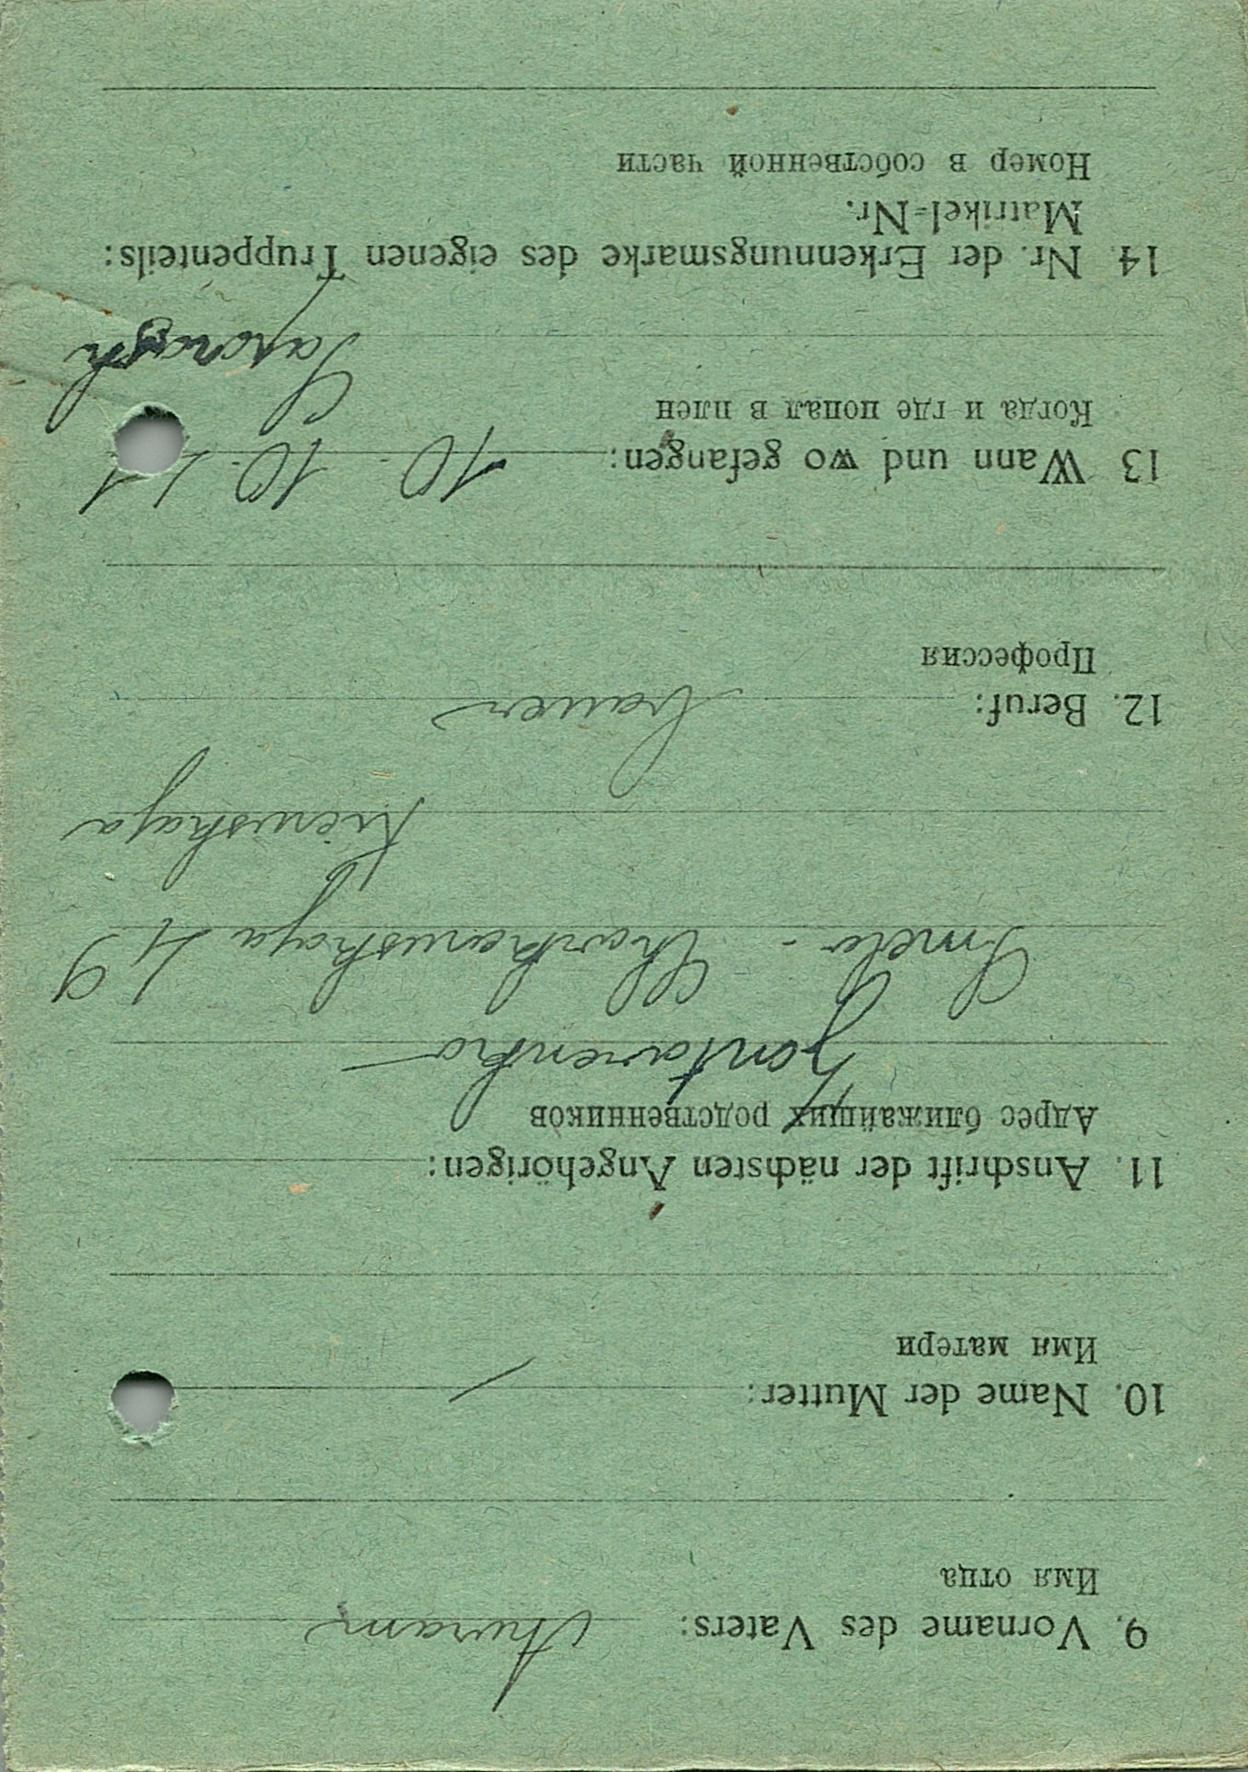 9. Vorname des Vaters: Awram
Имя отца
10. Name der Mutter: —
Имя матери
11. Anschrift der nächsten Angehörigen:
Адрес ближайших родственников
Smela - Charkowskaja 49
Kiewskaja
12. Beruf: bauer
Профессия
13 Wann und wo gefangen: 10. 10. 41
Когда и где попал в плен
14. Nr. der Erkennungsmarke des eigenen Truppenteils:
Matrikel-Nr.
Номер в собственной части